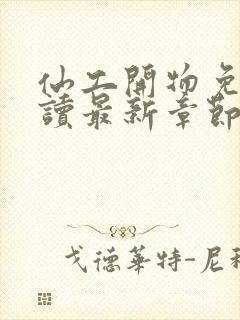 仙工開物免
讀最新章節
戈德華特-尼科